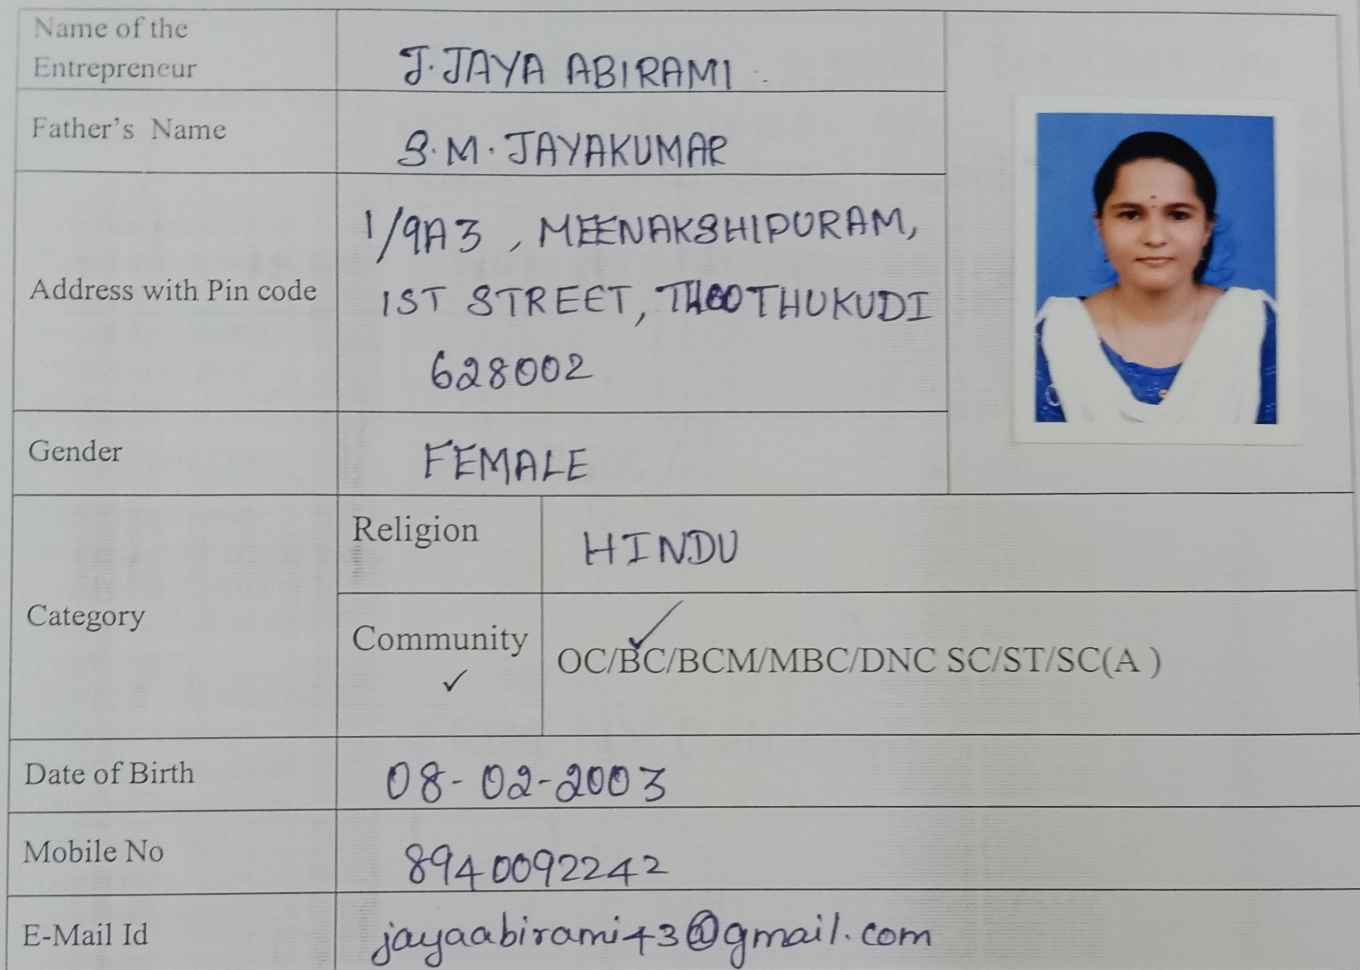 Name of the
Entrepreneur
J. JAYA ABIRAMI
Father's Name
S.M. JAYAKUMAR
Address with Pin code
1/9A3, MEENAKSHIPURAM,
1ST STREET, THOOTHUKUDI
628002
Gender
FEMALE
Category
Religion
HINDU
Community ✓
OC/BC/BCM/MBC/DNC SC/ST/SC(A )
Date of Birth
08-02-2003
Mobile No
8940092242
E-Mail Id
jayaabirami43@gmail.com